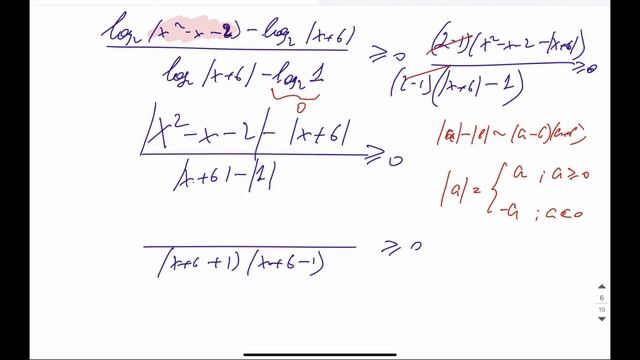 log₂(x²-x-2) - log₂|x+6|
log₂|x+6| - log₂1
≥ 0
0
(2-1)(x²-x-2-|x+6|)
(2-1)(|x+6|-1)
≥0
|x²-x-2| - |x+6|
|x+6| - |1|
≥ 0
|a|-|b| ~ (a-b)(a+b)
|a| = { a ; a≥0
-a ; a<0
(x+6+1)(x+6-1)
≥ 0
6
10